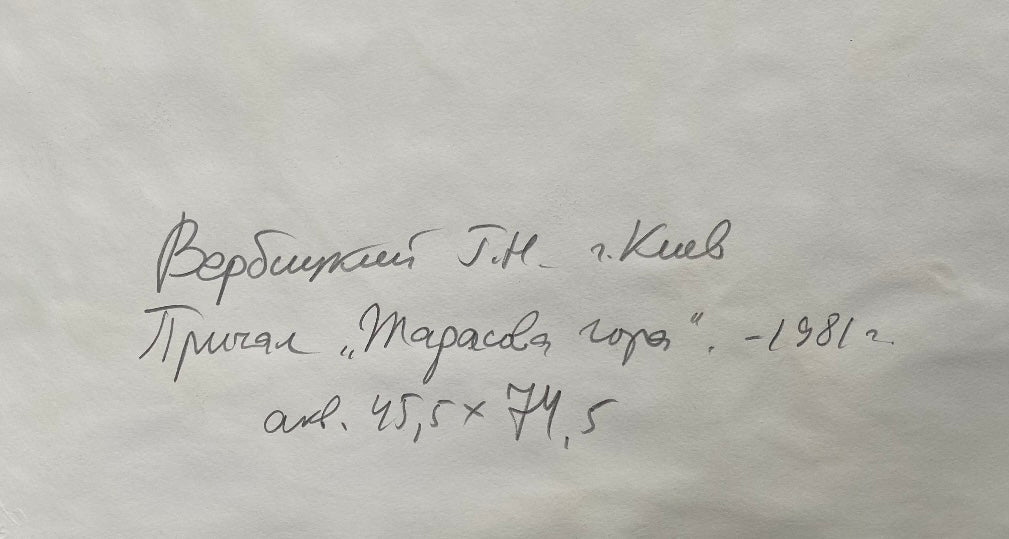 Вербицкий Г.Н. г. Киев
Причал „Тарасова гора". - 1981 г.
акв. 45,5 × 74,5